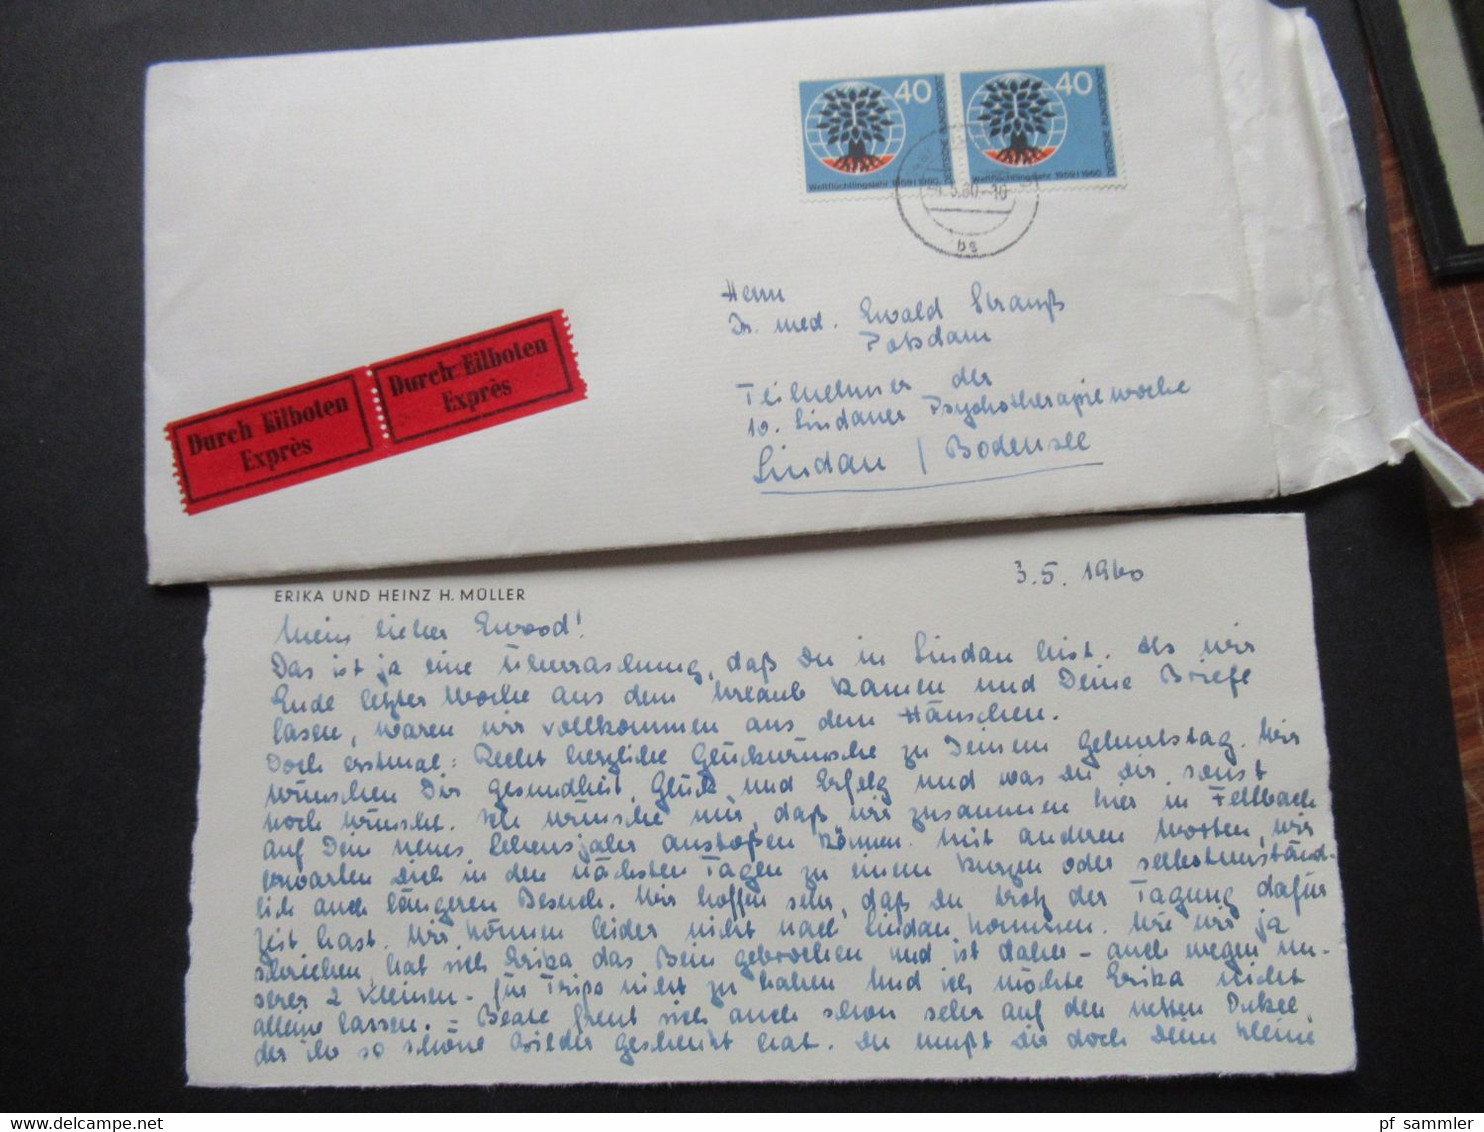 40 40
DEUTSCHE BUNDESPOST
Weltflüchtlingsjahr 1959/1960 Weltflüchtlingsjahr 1959/1960
5.60-10
bs
Durch Eilboten
Exprès
Durch Eilboten
Exprès
Herrn
Dr. med. Ewald Strauß
Potsdam
Teilnehmer der
10. Lindauer Psychotherapiewoche
Lindau / Bodensee
3.5.1960
ERIKA UND HEINZ H. MÜLLER
Mein lieber Ewald!
Das ist ja eine Überraschung, daß Du in Lindau bist. Als wir
Ende letzter Woche aus dem Urlaub kamen und Deine Briefe
lasen, waren wir vollkommen aus dem Häuschen.
Doch erstmal: Recht herzliche Glückwünsche zu Deinem Geburtstag. Wir
wünschen Dir Gesundheit, Glück und Erfolg und was Du Dir sonst
noch wünscht. Ich wünsche mir, daß wir zusammen hier in Fellbach
auf Dein neues Lebensjahr anstoßen können. Mit anderen Worten, wir
erwarten Dich in den nächsten Tagen zu einem kurzen oder selbstverständ-
lich auch längeren Besuch. Wir hoffen sehr, daß Du trotz der Tagung dafür
Zeit hast. Wir können leider nicht nach Lindau kommen. Wie wir ja
schrieben, hat sich Erika das Bein gebrochen und ist daher - auch wegen un-
serer 2 Kleinen - für Trips nicht zu haben und ich möchte Erika nicht
alleine lassen. = Beate freut sich auch schon sehr auf den netten Onkel,
der ihr so schöne Bilder geschenkt hat. Du mußt Dir doch Deine kleine
pf_sammler